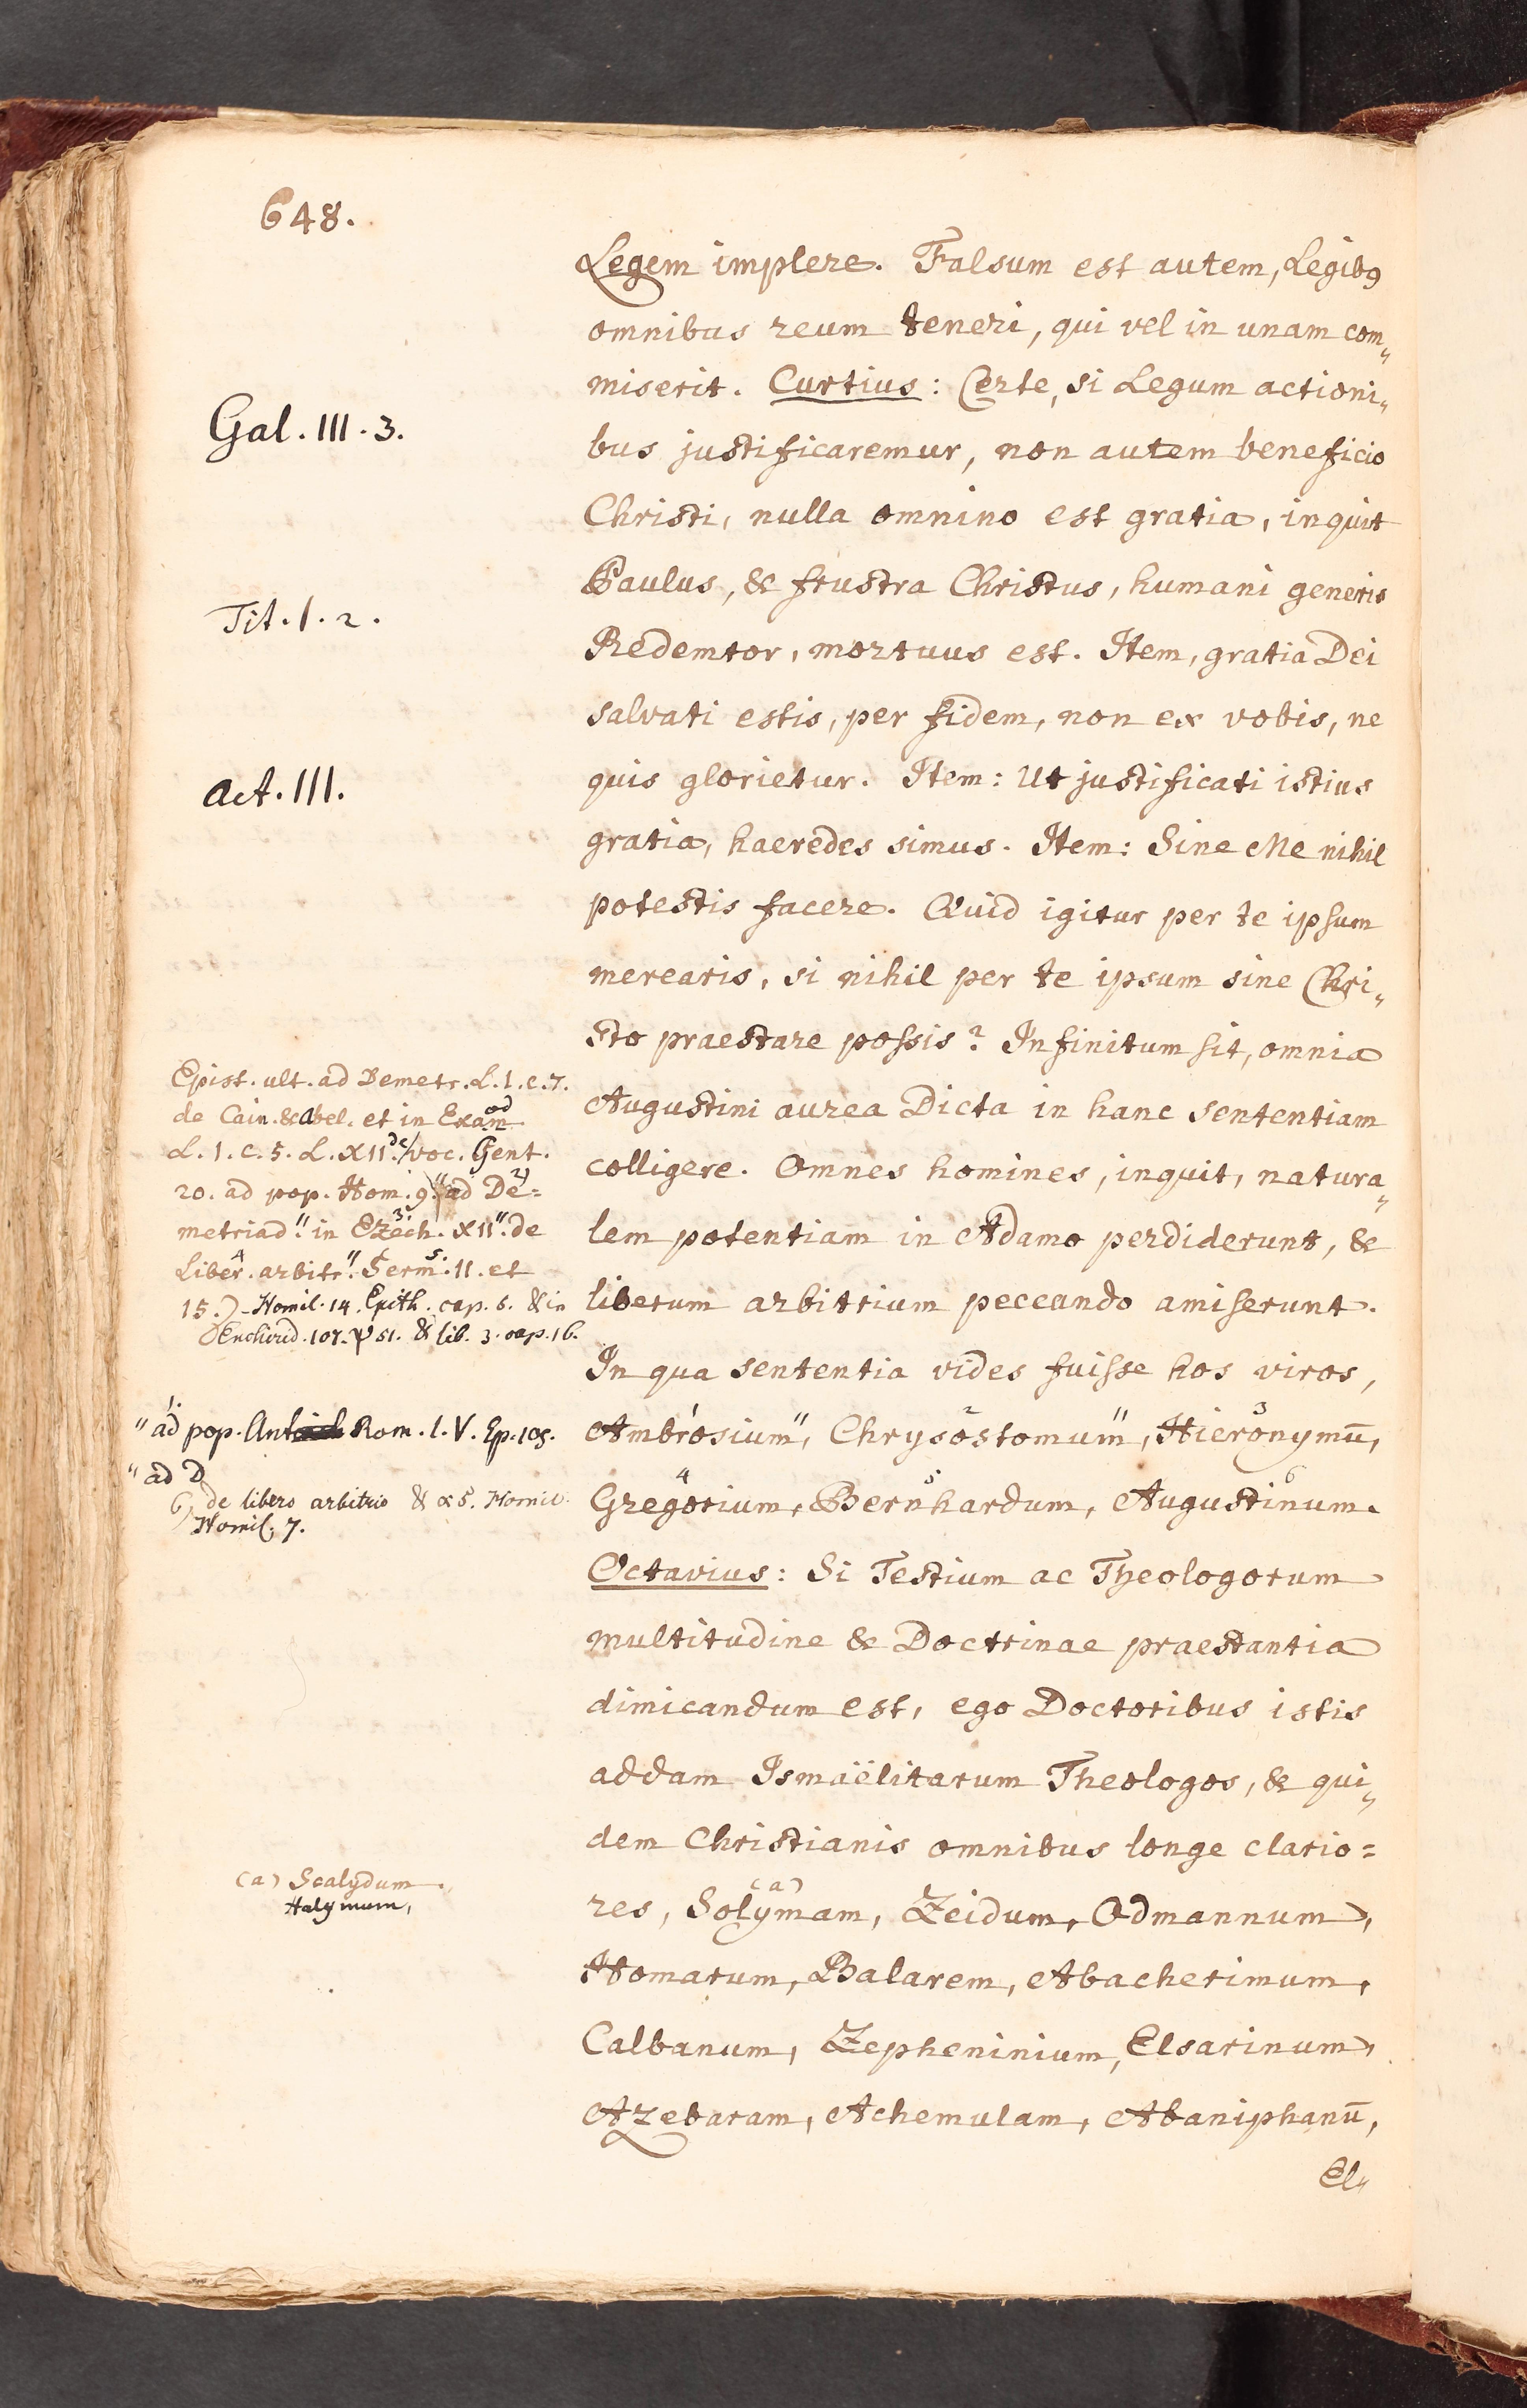 648.
Legem implere. Falsum est autem, Legibꝯ
omnibus reum teneri, qui vel in unam com„
miserit. Curtius: Certe, si Legum actioni„
bus justificaremur, non autem beneficio
Christi, nulla omnino est gratia, inquit
Paulus, & frustra Christus, humani generis
Redemtor, mortuus est. Item, gratia Dei
salvati estis, per fidem, non ex vobis, ne
quis glorietur. Item: Ut justificati istius
gratia, haeredes simus. Item: Sine Me nihil
potestis facere. Quid igitur per te ipsum
merearis, si nihil per te ipsum sine Chri„
sto praestare possis? Infinitum sit, omnia
Augustini aurea Dicta in hanc sententiam
colligere. Omnes homines, inquit, natura„
lem potentiam in Adamo perdiderunt, &
liberum arbitrium peccando amiserunt.
In qua sententia vides fuisse hos viros,
Ambrosium", 1 Chrysostomum", 2 Hieronymū, 3
Gregorium, 4 Bernhardum, 5 Augustinum. 6
Octavius: Si Testium ac Theologorum
multitudine & Doctrinae praestantia
dimicandum est, ego Doctoribus istis
addam Ismaëlitarum Theologos, & qui„
dem Christianis omnibus longe clario=
res, Solymam, (a) Zeidum, Odmannum,
Homarum, Balarem, Abacherimum,
Calbanum, Zepheninium, Elsarinum,
Azebaram, Achemulam, Abaniphanū,
El„
Gal. III. 3.
Tit. 1. 2.
Act. III.
Epist. ult. ad Demetr. L. 1. c. 7.
de Cain. & Abel. et in Exam
L. 1. c. 5. L. XII. de voc. Gent.
20. ad pop. Hom. 9." ad De= 2)
metriad." in Ezech. 3. XII". de
Liber. 4 arbitr." Serm. 5. 11. et
15.) Homil. 14. Epith. cap. 6. & in
Enchirid. 107. ψ 51. & lib. 3. cap. 16.
1. " ad pop. Rom. l. V. Ep. 105.
" ad D
6) de libero arbitrio & 5. Homil.
Homil. 7.
(a) Scalydum
Halymum,